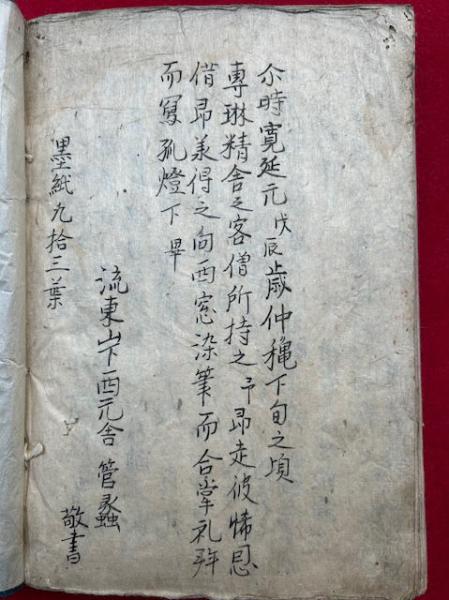 尒時寛延元戊辰歳仲穐下旬之頃
専琳精舎之客僧所持之予昂走彼悕
借昂羕得之向西窓染筆而合掌礼
而冩孤燈下畢
流東山下西元舎 管蠡
敬書
墨紙九拾三葉